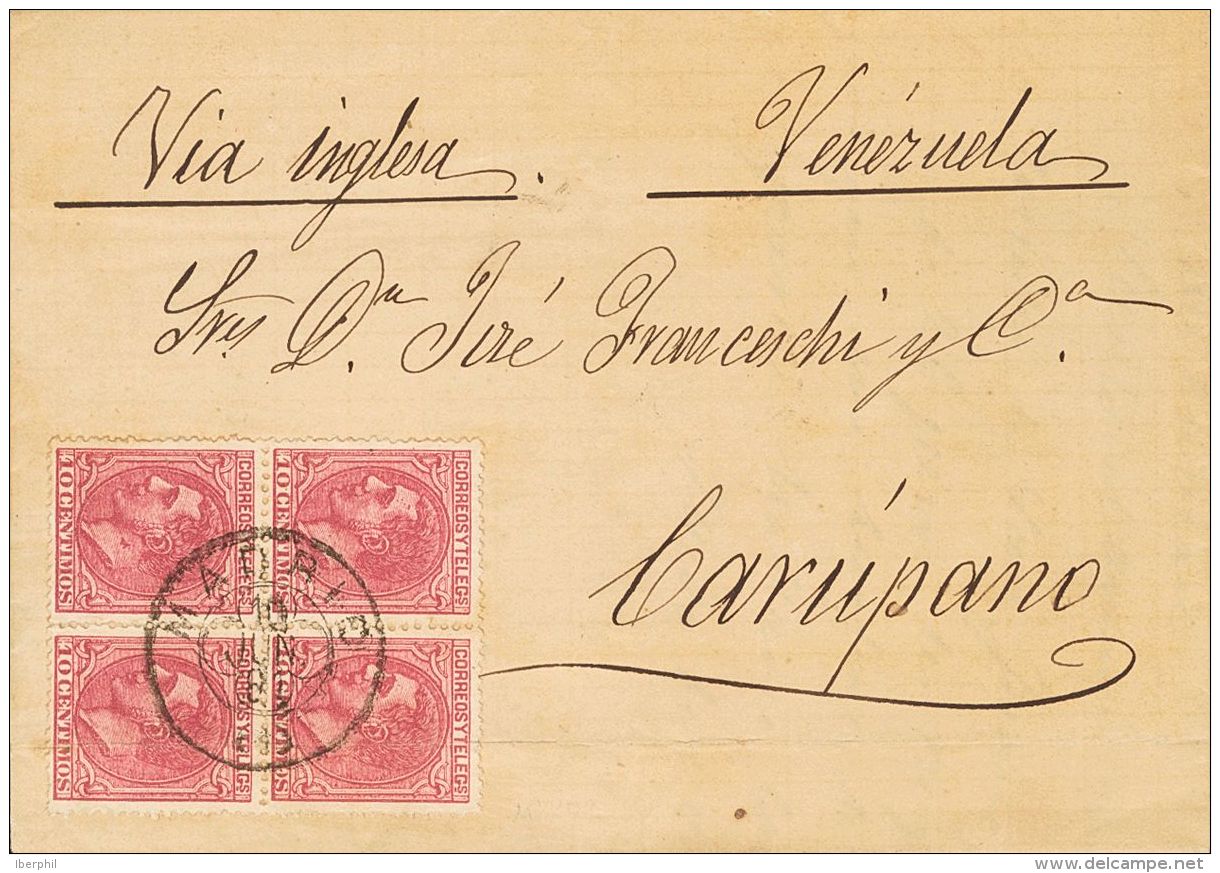 Via inglesa. Venézuela
Sres Dn José Franceschi y Ca.
Carúpano
CORREOS Y TELEGS
10 CENTIMOS
CORREOS Y TELEGS
10 CENTIMOS
MADRID
10
JUN
CORREOS Y TELEGS
10 CENTIMOS
CORREOS Y TELEGS
10 CENTIMOS
Iberphil
delcampe.net